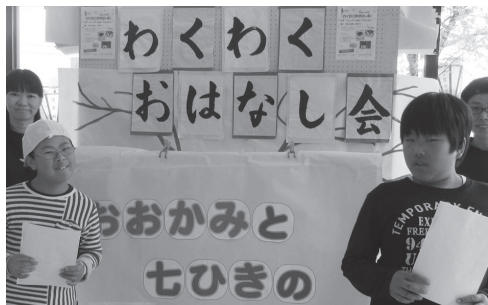 わくわく
おはなし会
おおかみと
七ひきの
TEMPORARY EX
FREE
94